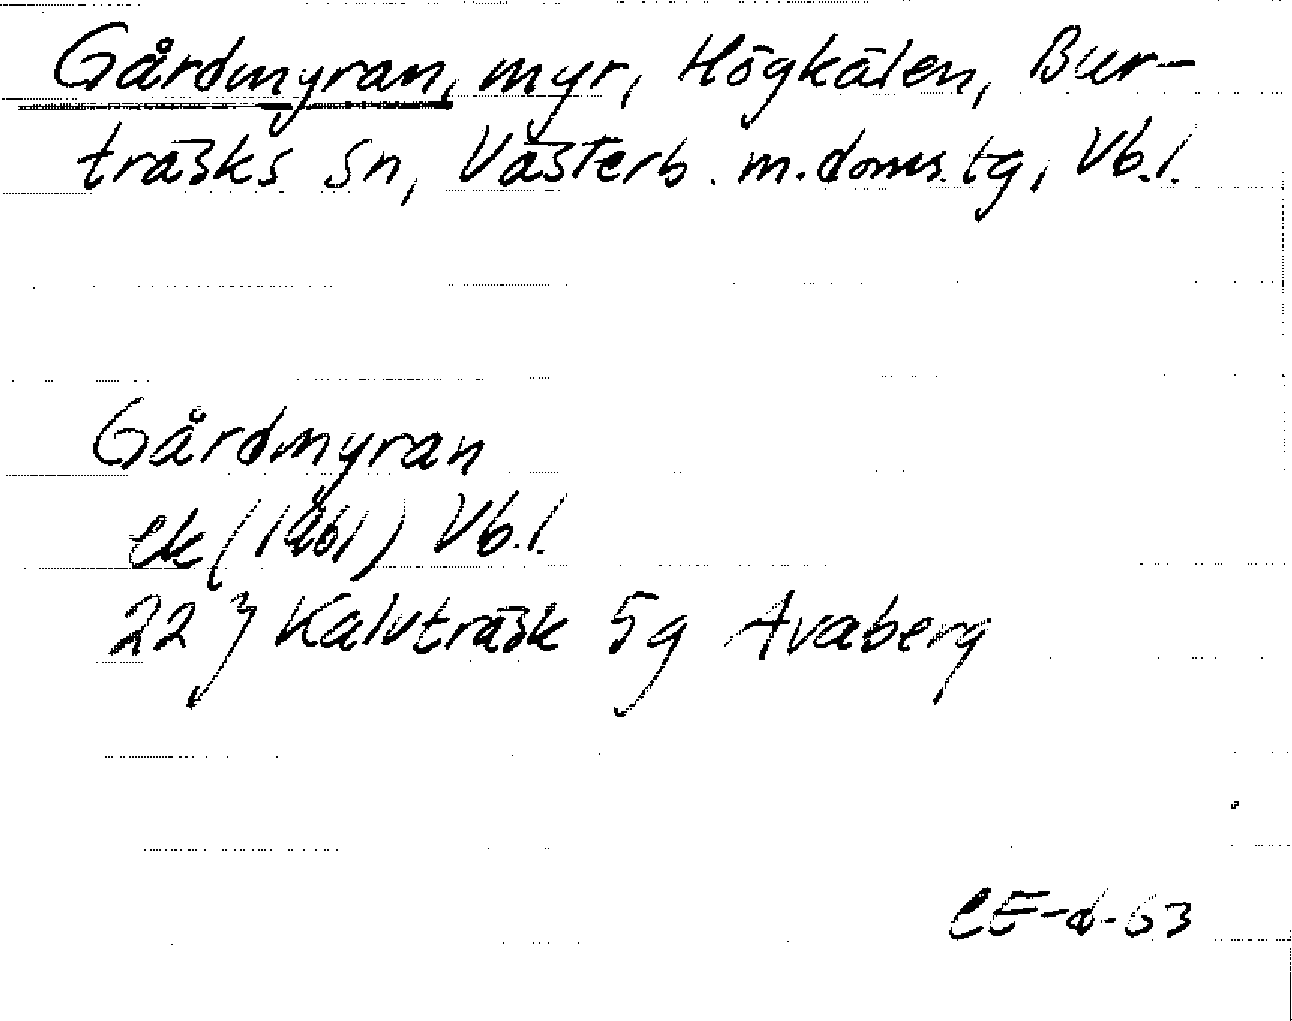 Gårdmyran, myr, Högkälen, Bur-
träsks sn, Västerb. m. doms. tg, Vb. l.
Gårdmyran
ek (1961) Vb. l.
22 J Kalvträsk 5g Avaberg
CE-d-63